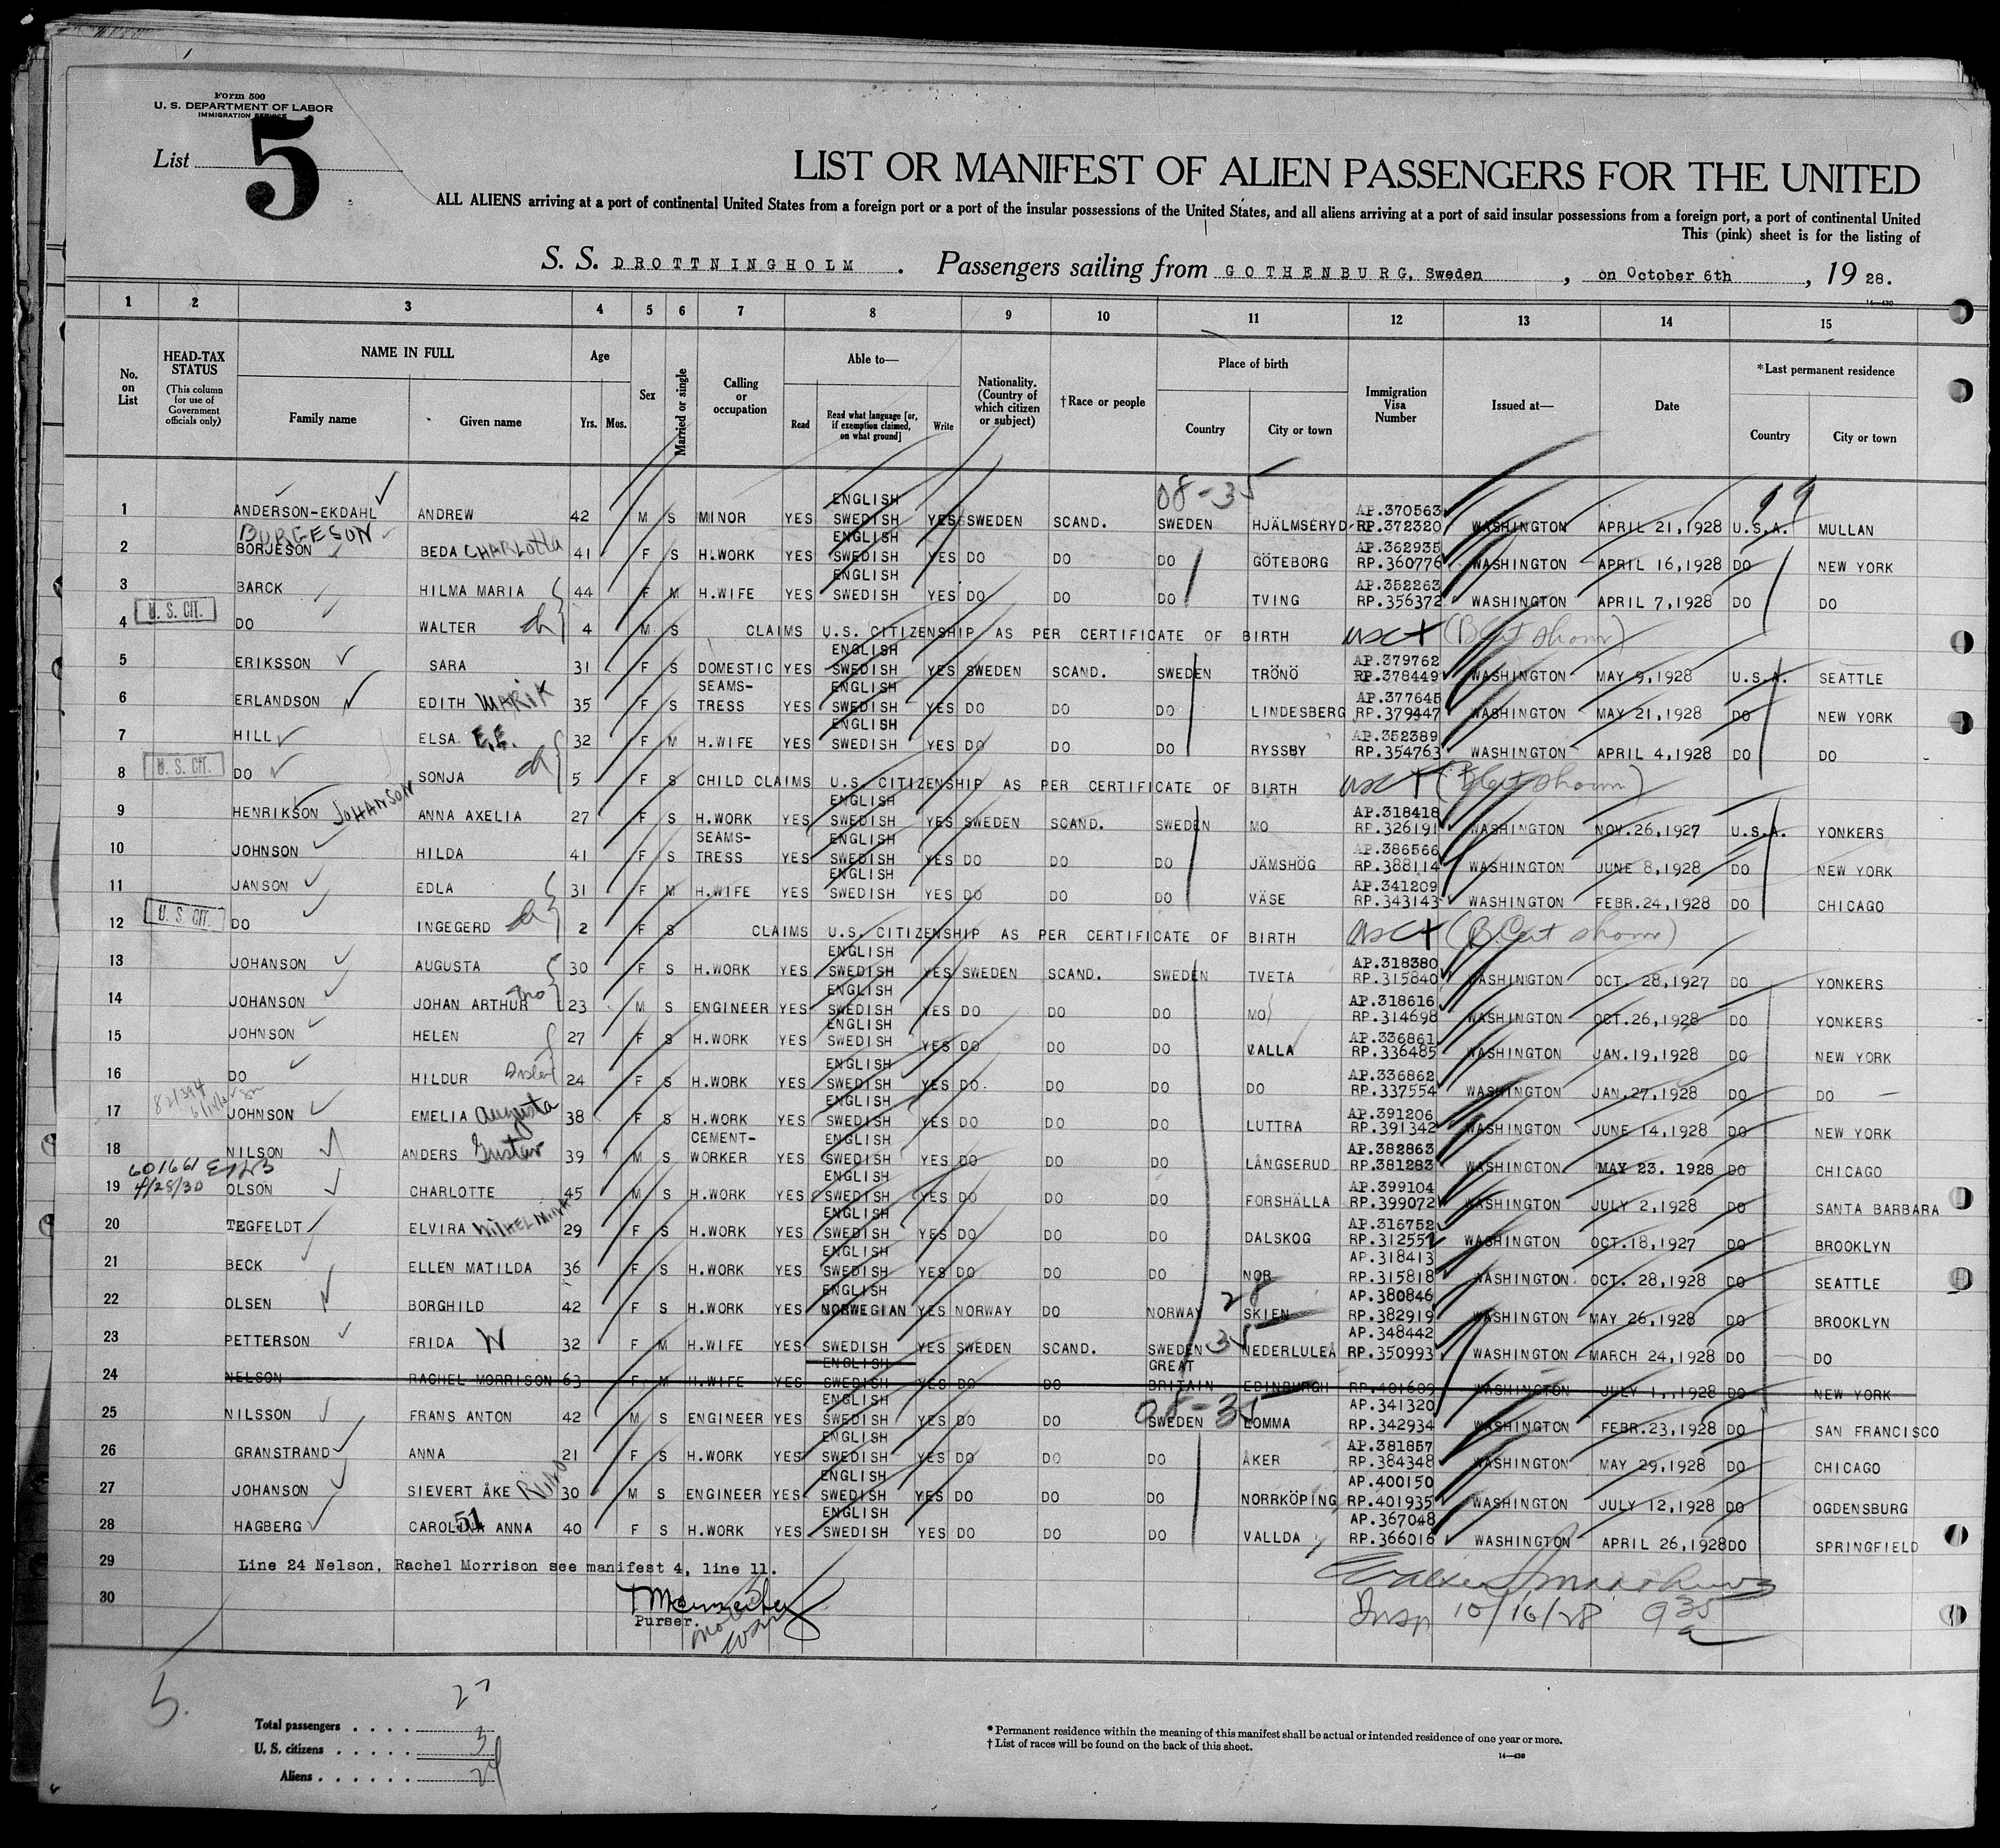 Form 500
U. S. DEPARTMENT OF LABOR
IMMIGRATION SERVICE
List 5
LIST OR MANIFEST OF ALIEN PASSENGERS FOR THE UNITED
ALL ALIENS arriving at a port of continental United States from a foreign port or a port of the insular possessions of the United States, and all aliens arriving at a port of said insular possessions from a foreign port, a port of continental United
This (pink) sheet is for the listing of
S. S. DROTTNINGHOLM . Passengers sailing from GOTHENBURG, Sweden , on October 6th , 19 28.
14—430
1 2 3 4 5 6 7 8 9 10 11 12 13 14 15
No. on List
HEAD-TAX STATUS (This column for use of Government officials only)
NAME IN FULL
Family name Given name
Age
Yrs. Mos.
Sex
Married or single
Calling or occupation
Able to—
Read Read what language [or, if exemption claimed, on what ground] Write
Nationality. (Country of which citizen or subject)
†Race or people
Place of birth
Country City or town
Immigration Visa Number
Issued at—
Date
*Last permanent residence
Country City or town
08-35 99
1 ANDERSON-EKDAHL ANDREW 42 M S MINOR YES ENGLISH SWEDISH YES SWEDEN SCAND. SWEDEN HJÄLMSERYD AP.370563 RP.372320 WASHINGTON APRIL 21,1928 U.S.A. MULLAN
BURGESON
2 BORJESON BEDA CHARLOTTA 41 F S H.WORK YES ENGLISH SWEDISH YES DO DO DO GÖTEBORG AP.362935 RP.360776 WASHINGTON APRIL 16,1928 DO NEW YORK
3 BARCK HILMA MARIA 44 F M H.WIFE YES ENGLISH SWEDISH YES DO DO DO TVING AP.352263 RP.356372 WASHINGTON APRIL 7,1928 DO DO
U. S. CIT.
4 DO WALTER ch 4 M S CLAIMS U.S. CITIZENSHIP AS PER CERTIFICATE OF BIRTH usc+ (B Cert shown)
5 ERIKSSON SARA 31 F S DOMESTIC YES ENGLISH SWEDISH YES SWEDEN SCAND. SWEDEN TRÖNÖ AP.379762 RP.378449 WASHINGTON MAY 9,1928 U.S.A. SEATTLE
6 ERLANDSON EDITH MARIK 35 F S SEAMS-TRESS YES ENGLISH SWEDISH YES DO DO DO LINDESBERG AP.377645 RP.379447 WASHINGTON MAY 21,1928 DO NEW YORK
7 HILL ELSA E.E. 32 F M H.WIFE YES ENGLISH SWEDISH YES DO DO DO RYSSBY AP.352389 RP.354763 WASHINGTON APRIL 4,1928 DO DO
U. S. CIT.
8 DO SONJA ch 5 F S CHILD CLAIMS U.S. CITIZENSHIP AS PER CERTIFICATE OF BIRTH usc+ (B Cert shown)
9 HENRIKSON JOHANSON ANNA AXELIA 27 F S H.WORK YES ENGLISH SWEDISH YES SWEDEN SCAND. SWEDEN MO AP.318418 RP.326191 WASHINGTON NOV.26,1927 U.S.A. YONKERS
10 JOHNSON HILDA 41 F S SEAMS-TRESS YES ENGLISH SWEDISH YES DO DO DO JÄMSHÖG AP.386566 RP.388114 WASHINGTON JUNE 8,1928 DO NEW YORK
11 JANSON EDLA 31 F M H.WIFE YES ENGLISH SWEDISH YES DO DO DO VÄSE AP.341209 RP.343143 WASHINGTON FEBR.24,1928 DO CHICAGO
U. S. CIT.
12 DO INGEGERD ch 2 F S CLAIMS U.S. CITIZENSHIP AS PER CERTIFICATE OF BIRTH usc+ (B.Cert shown)
13 JOHANSON AUGUSTA 30 F S H.WORK YES ENGLISH SWEDISH YES SWEDEN SCAND. SWEDEN TVETA AP.318380 RP.315840 WASHINGTON OCT. 28,1927 DO YONKERS
14 JOHANSON JOHAN ARTHUR Bro 23 M S ENGINEER YES ENGLISH SWEDISH YES DO DO DO MO AP.318616 RP.314698 WASHINGTON OCT.26,1928 DO YONKERS
15 JOHNSON HELEN 27 F S H.WORK YES ENGLISH SWEDISH YES DO DO DO VALLA AP.336861 RP.336485 WASHINGTON JAN.19,1928 DO NEW YORK
16 DO HILDUR Sister 24 F S H.WORK YES ENGLISH SWEDISH YES DO. DO DO DO AP.336862 RP.337554 WASHINGTON JAN.27,1928 DO DO
17 JOHNSON EMELIA Augusta 38 F S H.WORK YES ENGLISH SWEDISH YES DO DO DO LUTTRA AP.391206 RP.391342 WASHINGTON JUNE 14,1928 DO NEW YORK
18 NILSON ANDERS Gustav 39 M S CEMENT-WORKER YES ENGLISH SWEDISH YES DO DO DO LÅNGSERUD AP.382863 RP.381283 WASHINGTON MAY 23. 1928 DO CHICAGO
601661
19 4/28/30 OLSON CHARLOTTE 45 M S H.WORK YES ENGLISH SWEDISH YES DO DO DO FORSHÄLLA AP.399104 RP.399072 WASHINGTON JULY 2,1928 DO SANTA BARBARA
20 TEGFELDT ELVIRA WILHELMINA 29 F S H.WORK YES ENGLISH SWEDISH YES DO DO DO DALSKOG AP.316752 RP.312557 WASHINGTON OCT.18,1927 DO BROOKLYN
21 BECK ELLEN MATILDA 36 F S H.WORK YES ENGLISH SWEDISH YES DO DO DO NOR AP.318413 RP.315818 WASHINGTON OCT. 28,1928 DO SEATTLE
22 OLSEN BORGHILD 42 F S H.WORK YES ENGLISH NORWEGIAN YES NORWAY DO NORWAY 28 SKIEN AP.380846 RP.382919 WASHINGTON MAY 26,1928 DO BROOKLYN
23 PETTERSON FRIDA W 32 F M H.WIFE YES SWEDISH YES SWEDEN SCAND. SWEDEN 35 NEDERLULEÅ AP.348442 RP.350993 WASHINGTON MARCH 24,1928 DO DO
24 NELSON RACHEL MORRISON 63 F M H.WIFE YES ENGLISH SWEDISH YES DO DO GREAT BRITAIN EDINBURGH RP.401609 WASHINGTON JULY 1.,1928 DO NEW YORK
25 NILSSON FRANS ANTON 42 M S ENGINEER YES ENGLISH SWEDISH YES DO DO 08-35 SWEDEN LOMMA AP.341320 RP.342934 WASHINGTON FEBR.23,1928 DO SAN FRANCISCO
26 GRANSTRAND ANNA 21 F S H.WORK YES ENGLISH SWEDISH YES DO DO DO ÅKER AP.381857 RP.384348 WASHINGTON MAY 29,1928 DO CHICAGO
27 JOHANSON SIEVERT ÅKE 30 M S ENGINEER YES ENGLISH SWEDISH YES DO DO DO NORRKÖPING AP.400150 RP.401935 WASHINGTON JULY 12,1928 DO OGDENSBURG
28 HAGBERG CAROLINA ANNA 51 40 F S H.WORK YES ENGLISH SWEDISH YES DO DO DO VALLDA AP.367048 RP.366016 WASHINGTON APRIL 26,1928 DO SPRINGFIELD
29 Line 24 Nelson, Rachel Morrison see manifest 4, line 11.
30
Purser.
Insp 10/16/28 9 35 a
5.
Total passengers . . . . 27
U. S. citizens . . . . . 3
Aliens . . . . . . 24
* Permanent residence within the meaning of this manifest shall be actual or intended residence of one year or more.
† List of races will be found on the back of this sheet.
14—430